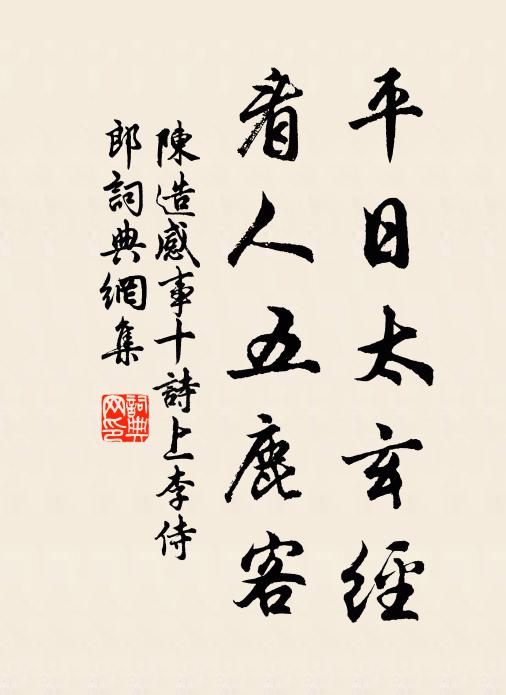 平日太玄經
看人五鹿客
陳造感事十詩上李侍
郎詞典網集
詞典
网印